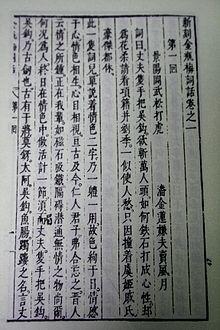 新刻金瓶梅詞話卷之一
第一回
景陽岡武松打虎
潘金蓮嫌夫賣風月
詞曰丈夫隻手把吳鈎欲斬萬人頭如何鐵石打成心性却
為花柔請看項籍并劉季一似使人愁只因撞着虞姬戚氏
豪傑都休
此一隻詞兒單說着情色二字乃一體一用故色絢于目情感
于心情色相生心目相視亘古及今仁人君子弗合忘之晉人
云情之所鍾正在我輩如磁石吸鐵隔碍潛通無情之物尚爾
何況為人終日在情色中做活計一節須知丈夫隻手把吳鈎
吳鈎乃古劍也古有干將莫鋣太阿吳鈎魚腸躅鏤之名言丈